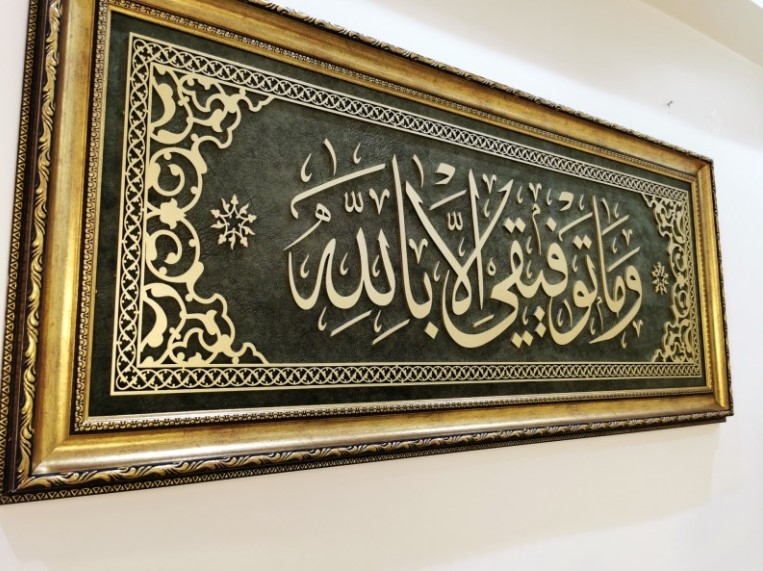 وَمَا تَوْفِيقِى اِلَّا بِاللّٰهِ